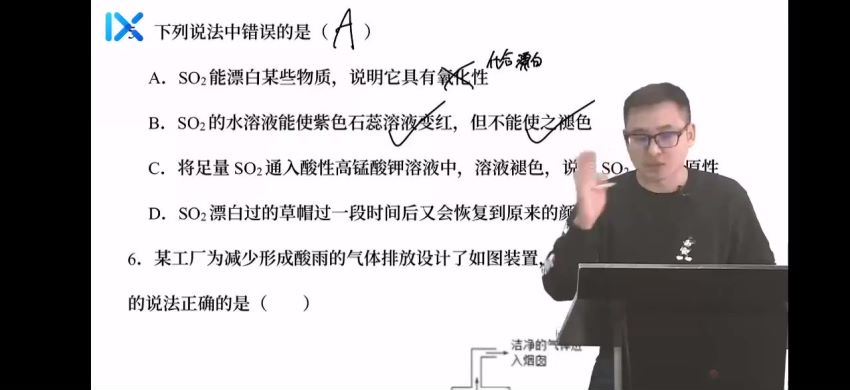 5. 下列说法中错误的是（A）
化合漂白
A．SO₂能漂白某些物质，说明它具有氧化性
B．SO₂的水溶液能使紫色石蕊溶液变红，但不能使之褪色
C．将足量 SO₂通入酸性高锰酸钾溶液中，溶液褪色，说 SO₂ 原性
D．SO₂漂白过的草帽过一段时间后又会恢复到原来的颜
6．某工厂为减少形成酸雨的气体排放设计了如图装置，
的说法正确的是（ ）
洁净的气体进
入烟囱